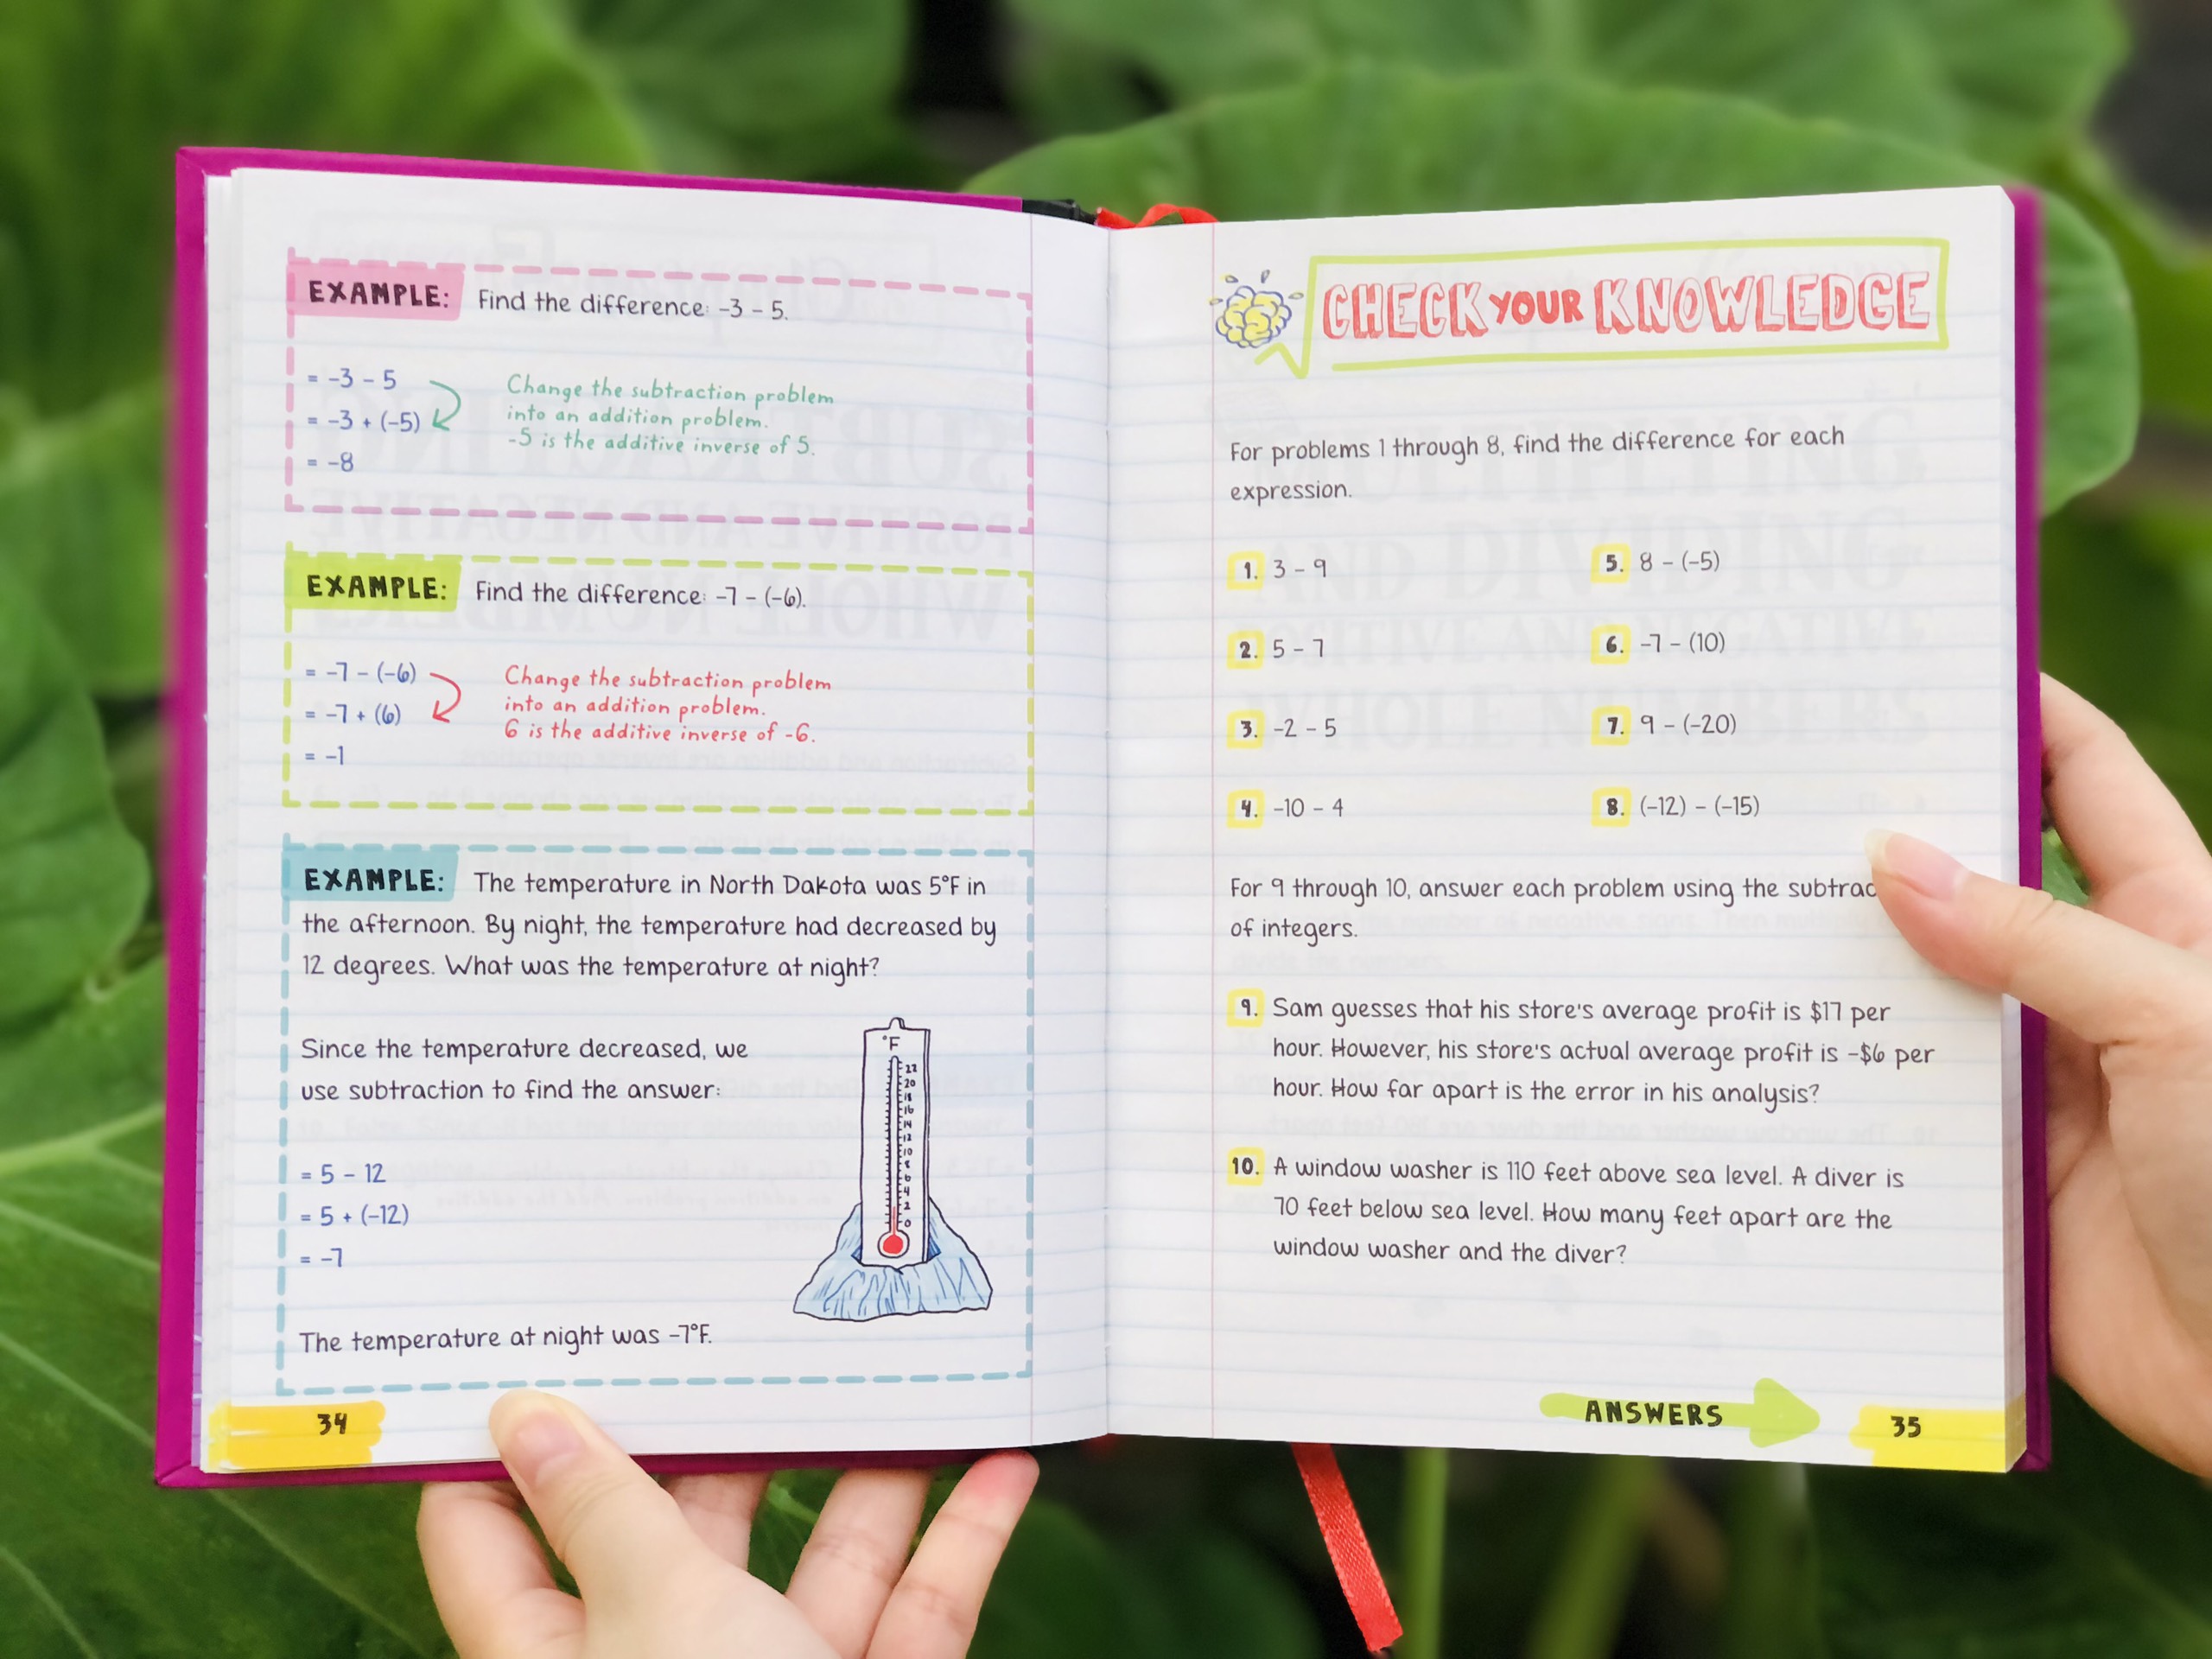 EXAMPLE: Find the difference: -3 - 5.
= -3 - 5
= -3 + (-5)
= -8
Change the subtraction problem
into an addition problem.
-5 is the additive inverse of 5.
EXAMPLE: Find the difference: -7 - (-6).
= -7 - (-6)
= -7 + (6)
= -1
Change the subtraction problem
into an addition problem.
6 is the additive inverse of -6.
EXAMPLE: The temperature in North Dakota was 5°F in
the afternoon. By night, the temperature had decreased by
12 degrees. What was the temperature at night?
Since the temperature decreased, we
use subtraction to find the answer:
= 5 - 12
= 5 + (-12)
= -7
°F
22
20
18
16
14
12
10
8
6
4
2
0
The temperature at night was -7°F.
34
CHECK YOUR KNOWLEDGE
For problems 1 through 8, find the difference for each
expression.
1. 3 - 9
2. 5 - 7
3. -2 - 5
4. -10 - 4
5. 8 - (-5)
6. -7 - (10)
7. 9 - (-20)
8. (-12) - (-15)
For 9 through 10, answer each problem using the subtrac
of integers.
9. Sam guesses that his store's average profit is $17 per
hour. However, his store's actual average profit is -$6 per
hour. How far apart is the error in his analysis?
10. A window washer is 110 feet above sea level. A diver is
70 feet below sea level. How many feet apart are the
window washer and the diver?
ANSWERS
35